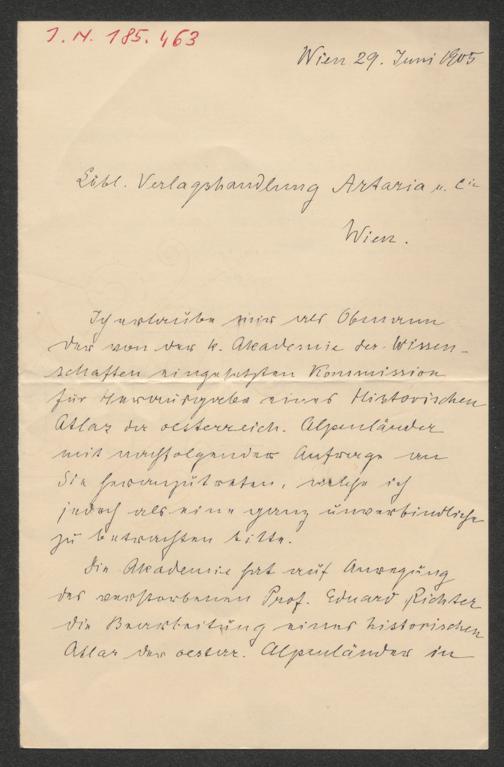 I. N. 185.463
Wien 29. Juni 1905
Löbl. Verlagshandlung Artaria u. Cie
Wien.
Ich erlaube mir als Obmann
der von der k. Akademie der Wissen-
schaften eingesetzten Kommission
für Herausgabe eines Historischen
Atlas der oesterreich. Alpenländer
mit nachfolgender Anfrage an
Sie heranzutreten, welche ich
jedoch als eine ganz unverbindliche
zu betrachten bitte.
Die Akademie hat auf Anregung
des verstorbenen Prof. Eduard Richter
die Bearbeitung eines historischen
Atlas der oesterr. Alpenländer in